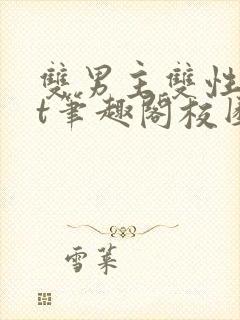 雙男主雙性
t筆趣閣校園
雪萊